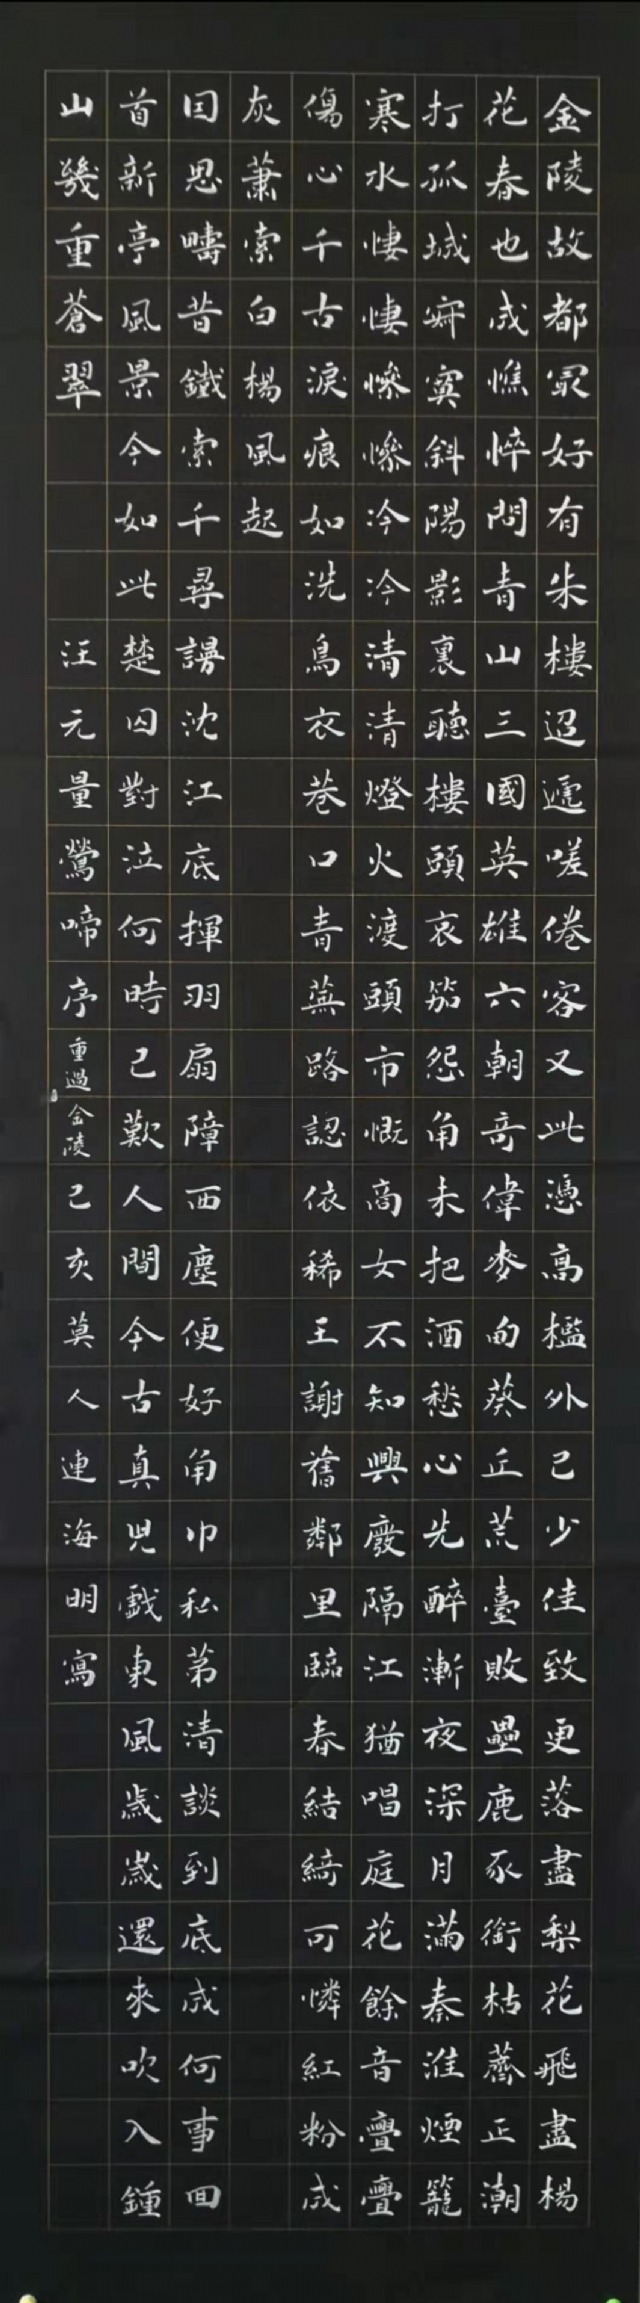 金陵故都冣好有朱樓迢遞嗟倦客又此憑高檻外已少佳致更落盡梨花飛盡楊
花春也成憔悴問青山三國英雄六朝奇偉麥甸葵丘荒臺敗壘鹿豕銜枯薺正潮
打孤城寂寞斜陽影裏聽樓頭哀笳怨角未把酒愁心先醉漸夜深月滿秦淮煙籠
寒水悽悽慘慘冷冷清清燈火渡頭市慨商女不知興廢隔江猶唱庭花餘音亹亹
傷心千古淚痕如洗烏衣巷口青蕪路認依稀王謝舊鄰里臨春結綺可憐紅粉成
灰蕭索白楊風起
因思疇昔鐵索千尋謾沈江底揮羽扇障西塵便好角巾私第清談到底成何事回
首新亭風景今如此楚囚對泣何時已歎人間今古真兒戲東風歲歲還來吹入鍾
山幾重蒼翠 汪元量鶯啼序重過金陵己亥莫人連海明寫